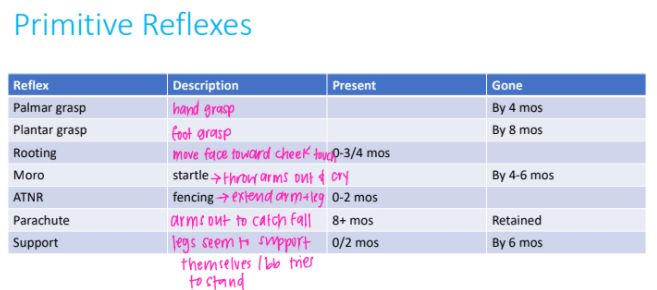 Primitive Reflexes
Reflex Description Present Gone
Palmar grasp hand grasp By 4 mos
Plantar grasp foot grasp By 8 mos
Rooting move face toward cheek touch 0-3/4 mos
Moro startle → throw arms out & cry By 4-6 mos
ATNR fencing → extend arm+leg 0-2 mos
Parachute arms out to catch fall 8+ mos Retained
Support legs seem to support 0/2 mos By 6 mos
themselves / bb tries
to stand